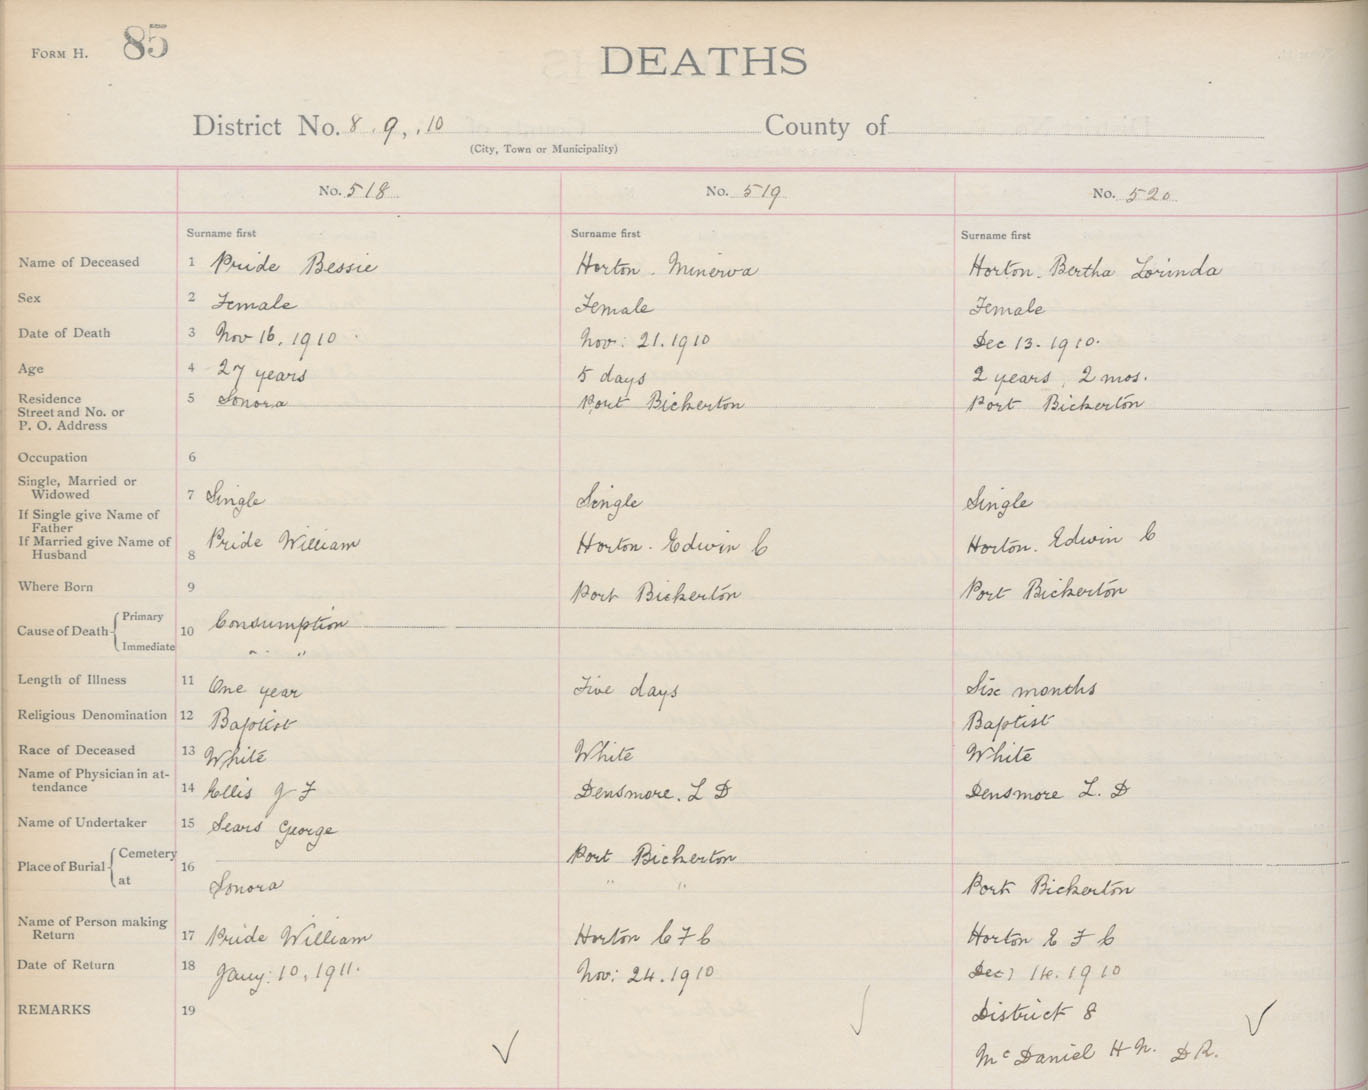 FORM H. 85
DEATHS
District No. 8, 9, 10 County of
(City, Town or Municipality)
No. 518 No. 519 No. 520
Surname first Surname first Surname first
Name of Deceased 1 Pride Bessie Horton. Minerva Horton. Bertha Lorinda
Sex 2 Female Female Female
Date of Death 3 Nov 16, 1910. Nov: 21. 1910 Dec 13. 1910.
Age 4 27 years 5 days 2 years, 2 mos.
Residence 5 Sonora Port Bickerton Port Bickerton
Street and No. or
P. O. Address
Occupation 6
Single, Married or
Widowed 7 Single Single Single
If Single give Name of
Father
If Married give Name of Pride William Horton. Edwin C Horton. Edwin C
Husband 8
Where Born 9 Port Bickerton Port Bickerton
Cause of Death Primary 10 Consumption
Immediate " "
Length of Illness 11 One year Five days Six months
Religious Denomination 12 Baptist Baptist
Race of Deceased 13 White White White
Name of Physician in at-
tendance 14 Ellis J F Densmore. L D Densmore L. D
Name of Undertaker 15 Sears George
Place of Burial Cemetery 16 Port Bickerton
at Sonora " " Port Bickerton
Name of Person making
Return 17 Pride William Horton C F C Horton E F C
Date of Return 18 Jany: 10, 1911. Nov: 24. 1910 Dec, 14. 1910
REMARKS 19 District 8
McDaniel H N. D R.